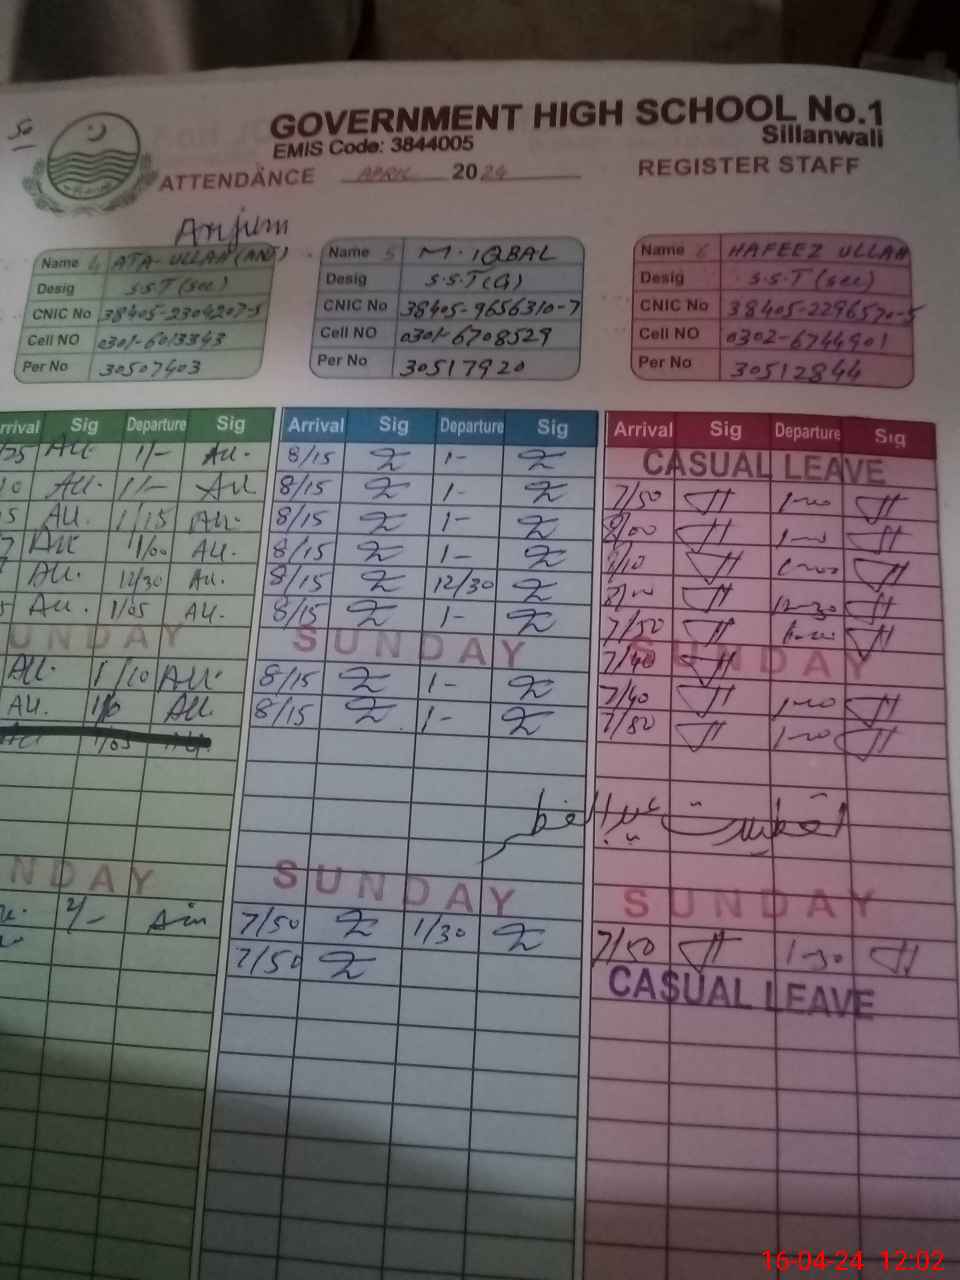 GOVERNMENT HIGH SCHOOL No.1
Sillanwali
EMIS Code: 3844005
ATTENDANCE APRIL 2024 REGISTER STAFF
Anjum
Name 4 ATA-ULLAH (ANJ)
Desig S.S.T (Sec)
CNIC No 38405-2304207-5
Cell NO 0301-6013343
Per No 30507403
Name 5 M. IQBAL
Desig S.S.T (G)
CNIC No 38405-9656310-7
Cell NO 0301-6708529
Per No 30517920
Name 6 HAFEEZ ULLAH
Desig S.S.T (Sec)
CNIC No 38405-2296570-5
Cell NO 0302-6744901
Per No 30512844
rrival Sig Departure Sig
1/-
1/-
1/15
1/00
12/30
1/05
UNDAY
1/10
NDAY
2/-
Arrival Sig Departure Sig
8/15 1-
8/15 1-
8/15 1-
8/15 1-
8/15 12/30
8/15 1-
SUNDAY
8/15 1-
8/15 1-
SUNDAY
7/50 1/30
7/50
Arrival Sig Departure Sig
CASUAL LEAVE
7/50 1-00
8/00 1-00
8/10 1-00
8/00 12-30
7/50 1-00
SUNDAY
7/40
7/40 1-00
1-00
تعطیلات عیدالفطر
SUNDAY
7/50 1-30
CASUAL LEAVE
16-04-24 12:02